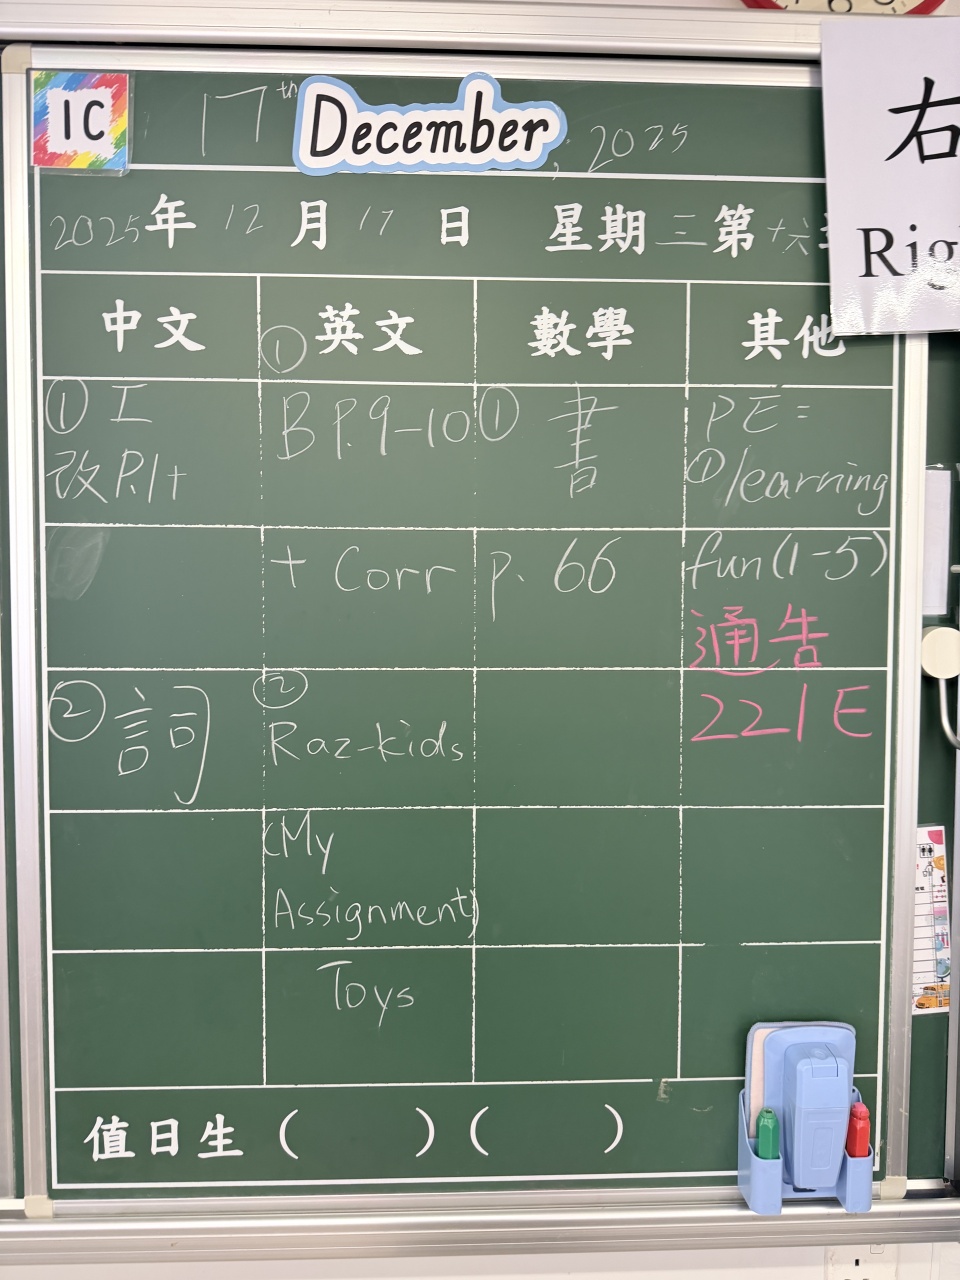 1C 17th December, 2025
2025年 12月 17日 星期三 第十六
右
Rig
中文 英文 數學 其他
① 工
改P.1+
② 詞
①
B P.9-10
+ Corr
②
Raz-kids
(My
Assignment)
Toys
① 書
p. 66
PE:
① learning
fun(1-5)
通告
221E
值日生 ( ) ( )